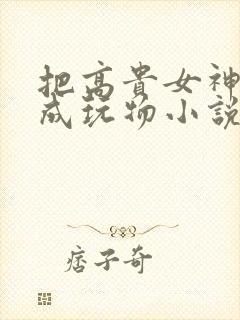 把高貴女神
成玩物小説
痞子奇